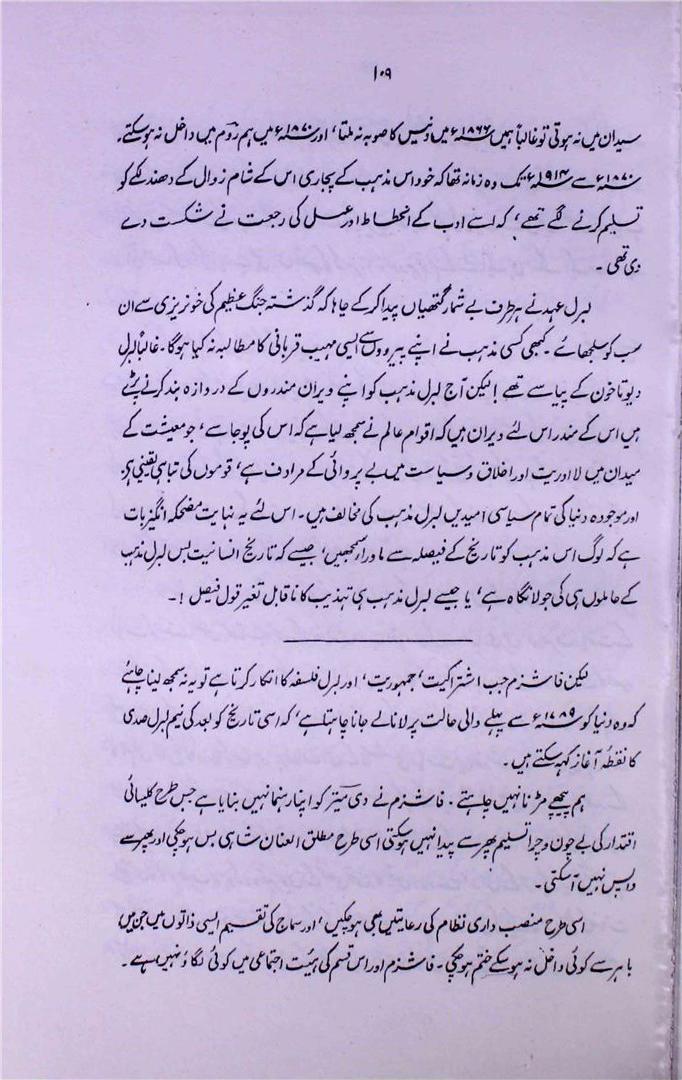 ۱۰۹
میدان میں نہ ہوتی تو غالباً ہمیں ۱۸۶۶ء میں ونیس کا صوبہ نہ ملتا، اور ۱۸۷۰ء میں ہم روم میں داخل نہ ہو سکتے۔
۱۸۷۰ء سے ۱۹۱۴ء تک وہ زمانہ تھا کہ خود اس مذہب کے پجاری اس کے شام زوال کے دھندلکے کو
تسلیم کرنے لگے تھے، کہ اسے ادب کے انحطاط اور عمل کی رجعت نے شکست دے
دی تھی۔
لبرل عہد نے ہر طرف بے شمار گتھیاں پیدا کر کے چاہا کہ گذشتہ جنگ عظیم کی خونریزی سے ان
سب کو سلجھائے۔ کبھی کسی مذہب نے اپنے پیرووں سے ایسی مہیب قربانی کا مطالبہ نہ کیا ہوگا۔ غالباً لبرل
دیوتا خون کے پیاسے تھے! لیکن آج لبرل مذہب کو اپنے ویران مندروں کے دروازہ بند کرنے پڑے
ہیں اس کے مندر اس لئے ویران ہیں کہ اقوام عالم نے سمجھ لیا ہے کہ اس کی پوجا سے، جو معیشت کے
میدان میں لاادریت اور اخلاق و سیاست میں بے پروائی کے مرادف ہے، قوموں کی تباہی یقینی ہی
اور موجودہ دنیا کی تمام سیاسی امیدیں لبرل مذہب کی مخالف ہیں۔ اس لئے یہ نہایت مضحکہ انگیز بات
ہے کہ لوگ اس مذہب کو تاریخ کے فیصلہ سے ماورا سمجھیں، جیسے کہ تاریخ انسانیت بس لبرل مذہب
کے عاملوں ہی کی جولانگاہ ہے، یا جیسے لبرل مذہب ہی تہذیب کا ناقابل تغیر قول فیصل!۔
لیکن فاشزم جب اشتراکیت، جمہوریت، اور لبرل فلسفہ کا انکار کرتا ہے تو یہ نہ سمجھ لینا چاہئے
کہ وہ دنیا کو ۱۷۸۹ء سے پہلے والی حالت پر لانا لے جانا چاہتا ہے، کہ اسی تاریخ کو بعد کی نیم لبرل صدی
کا نقطۂ آغاز کہہ سکتے ہیں۔
ہم پیچھے مڑنا نہیں چاہتے۔ فاشزم نے دی میتر کو اپنا رہنما نہیں بنایا ہے جس طرح کلیسائی
اقتدار کی بے چون و چرا تسلیم پھر سے پیدا نہیں ہو سکتی اسی طرح مطلق العنان شاہی بس ہو چکی اور پھر سے
واپس نہیں آ سکتی۔
اسی طرح منصب داری نظام کی رعایتیں بھی ہو چکیں، اور سماج کی تقسیم ایسی ذاتوں میں جن میں
باہر سے کوئی داخل نہ ہو سکے ختم ہو چکی۔ فاشزم اور اس قسم کی ہیئت اجتماعی میں کوئی لگاؤ نہیں ہے۔